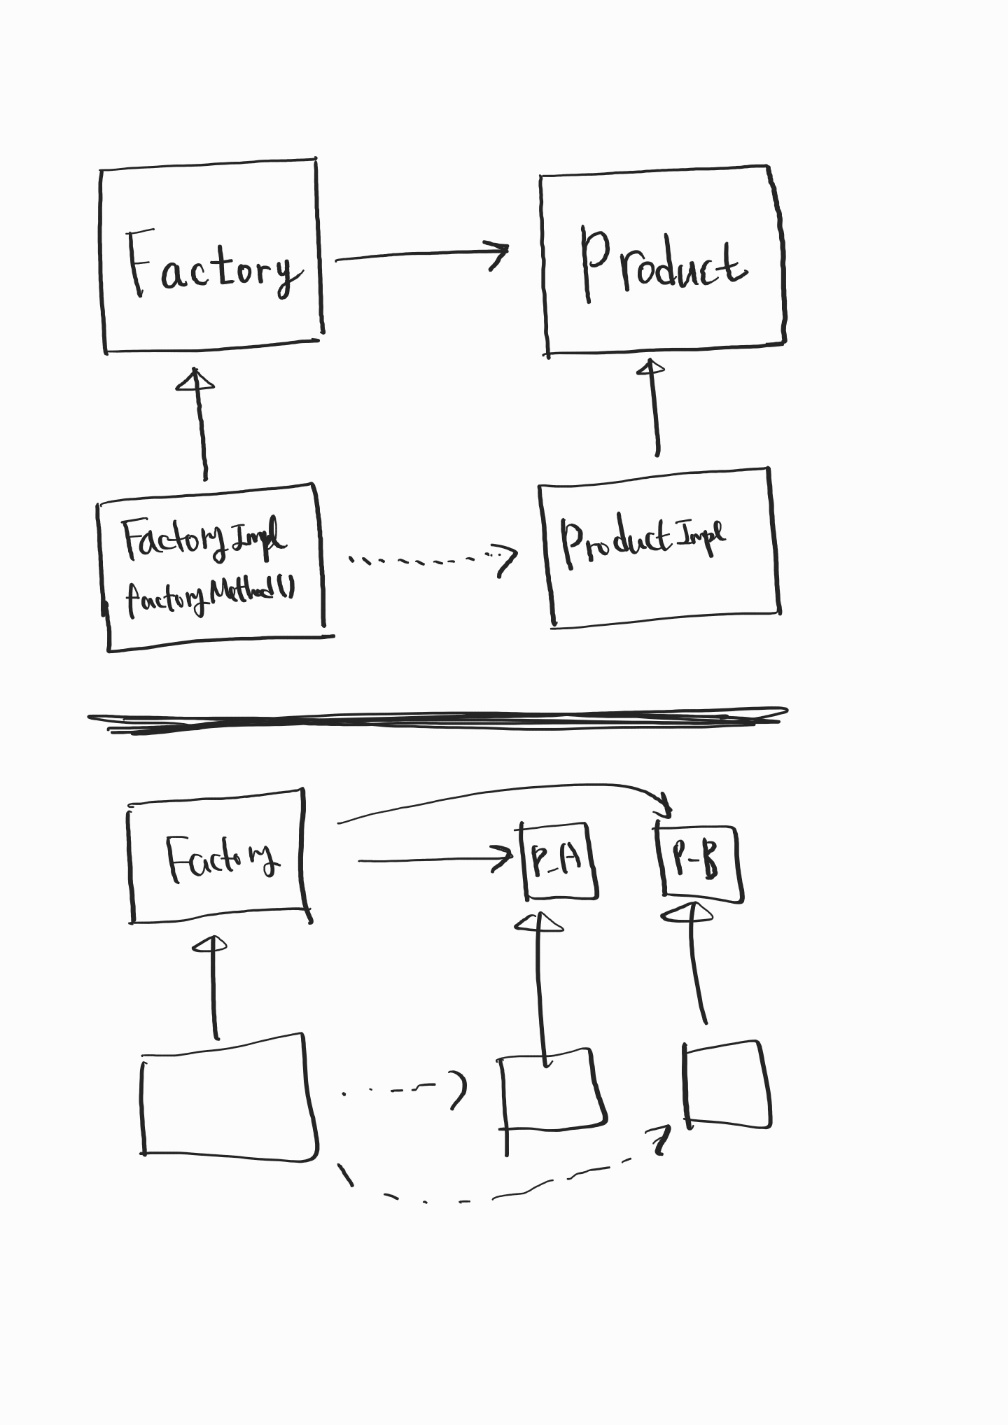 Factory
Product
FactoryImpl
factoryMethod()
ProductImpl
Factory
P_A
P-B